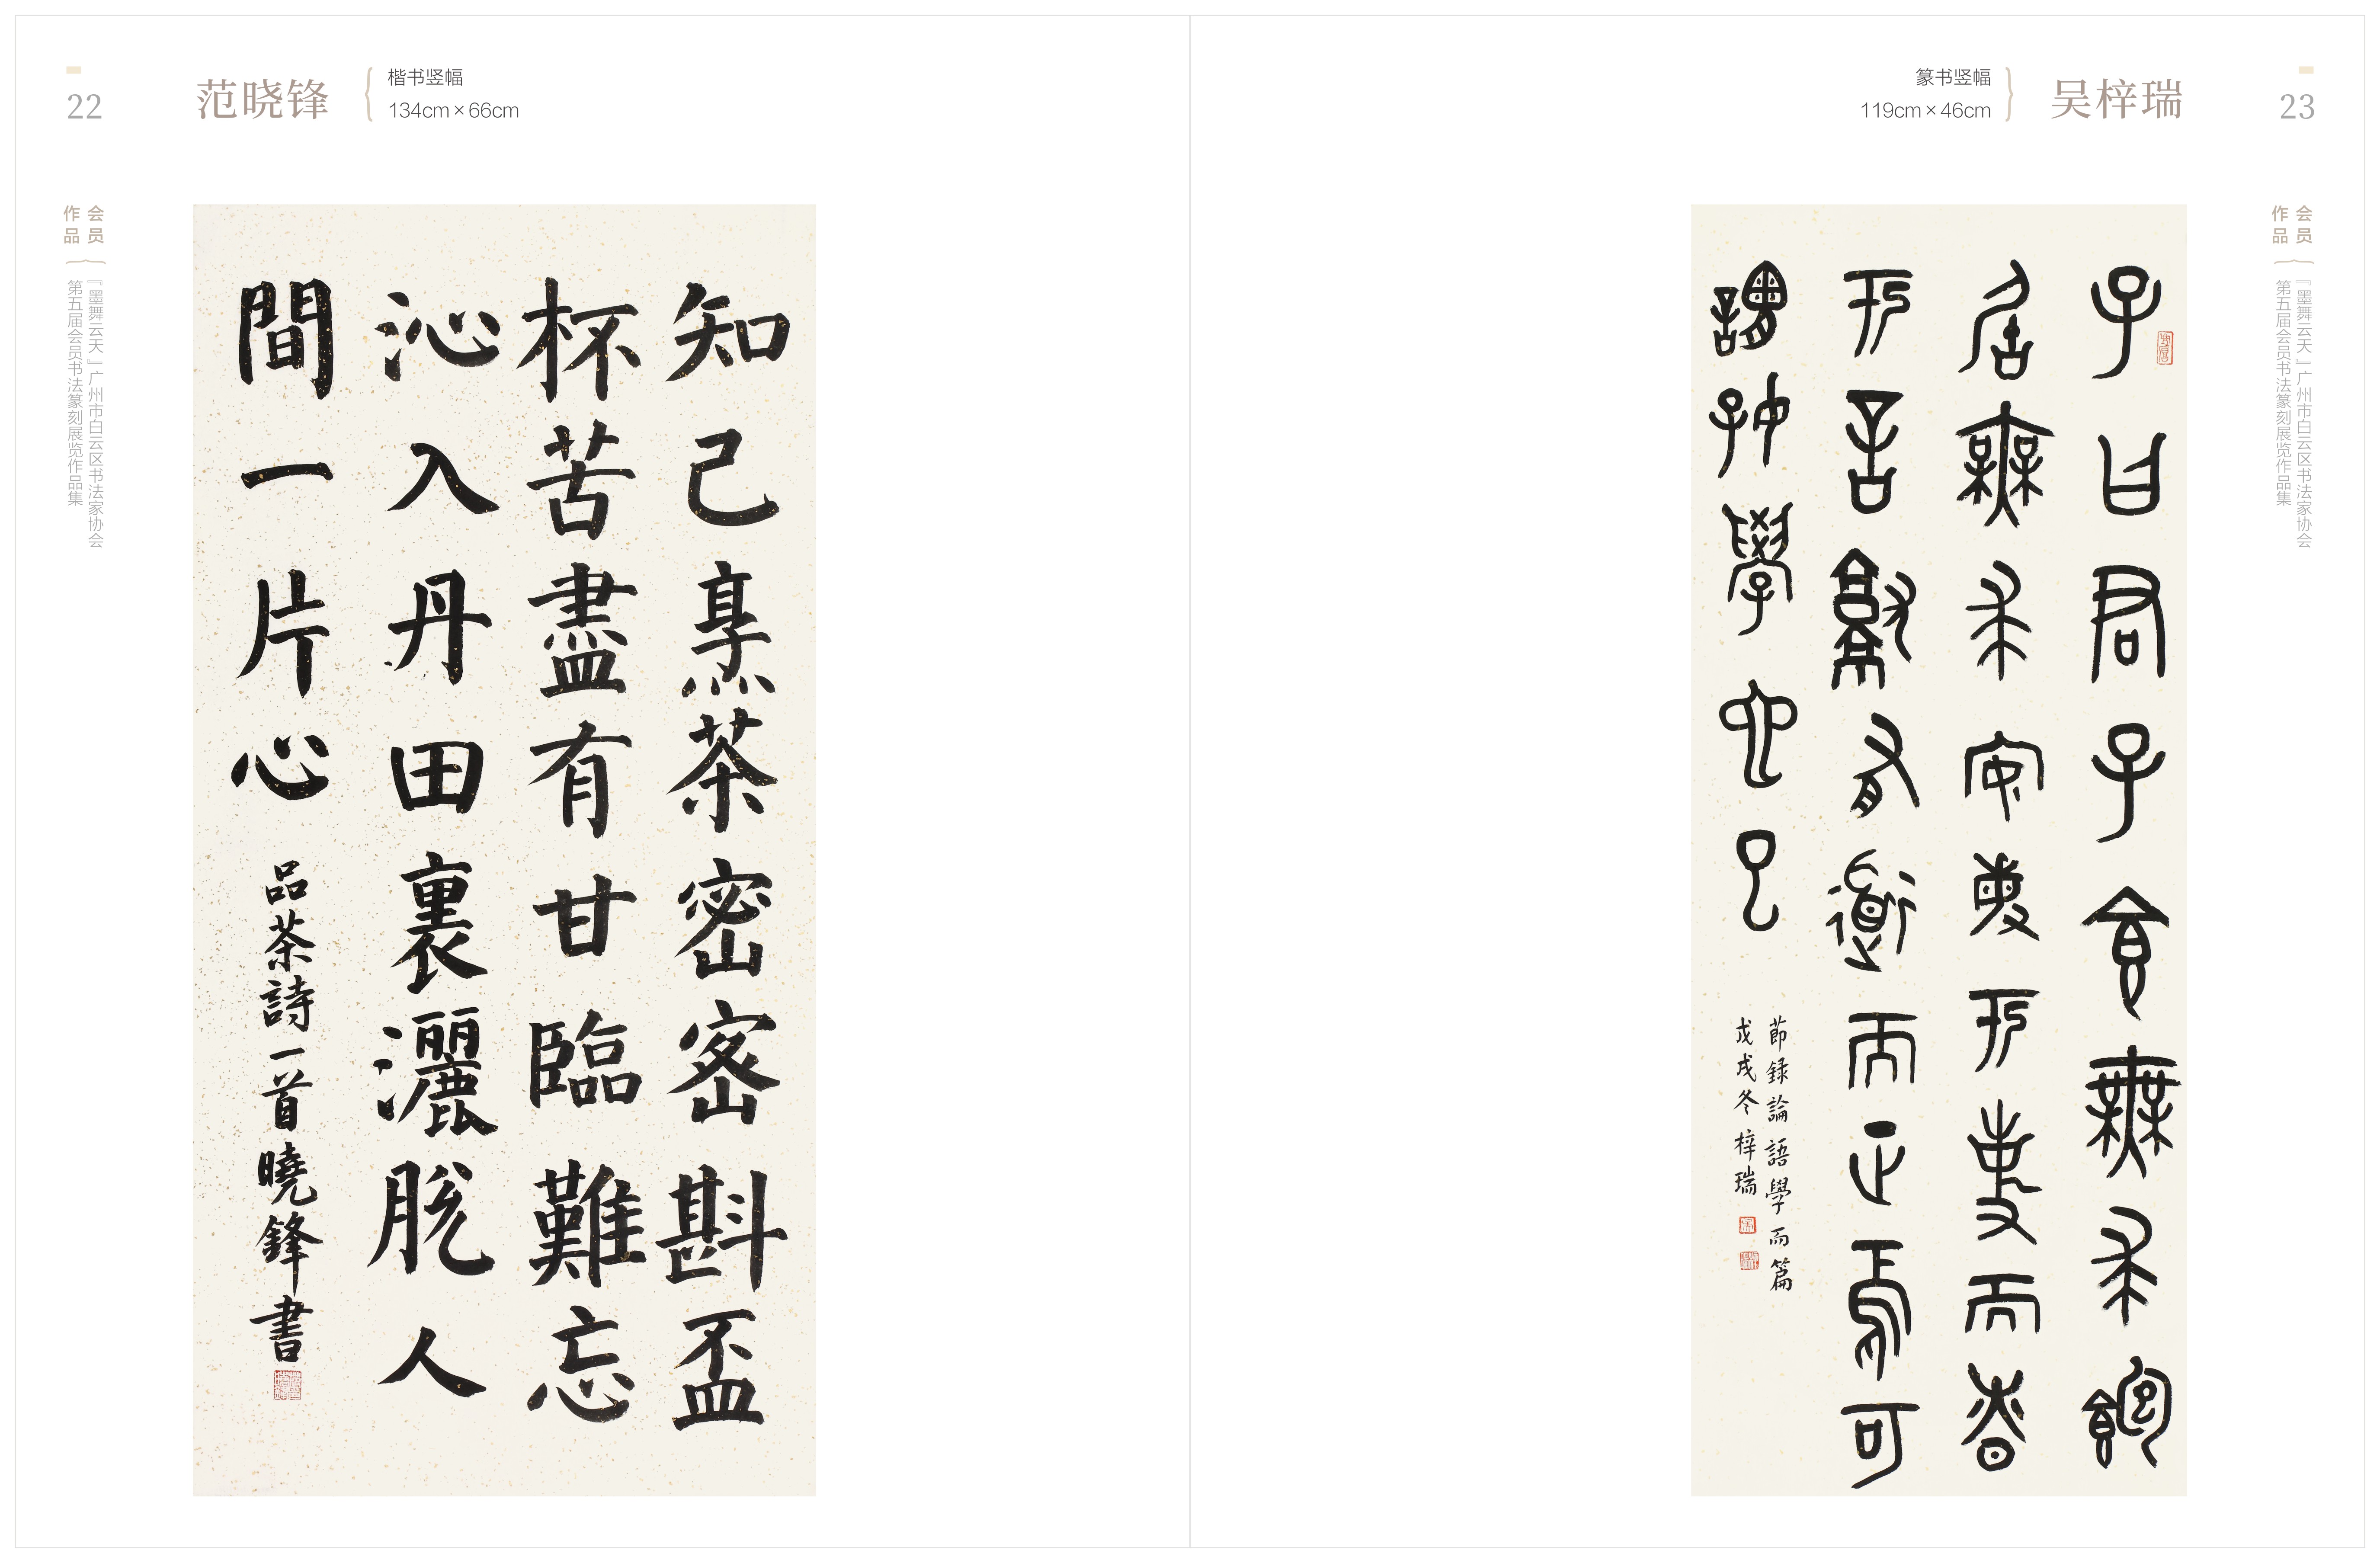 22
范晓锋
楷书竖幅
134cm×66cm
会员
作品
『墨舞云天』广州市白云区书法家协会
第五届会员书法篆刻展览作品集
知己烹茶密密斟盃
杯苦盡有甘臨難忘
沁入丹田裏灑脫人
間一片心
品茶詩一首曉鋒書
篆书竖幅
119cm×46cm
吴梓瑞
23
会员
作品
『墨舞云天』广州市白云区书法家协会
第五届会员书法篆刻展览作品集
子曰君子食無求飽
居無求安敏於事而昚
於言就有道而正焉可
謂好學也已
節録論語學而篇
戊戌冬梓瑞